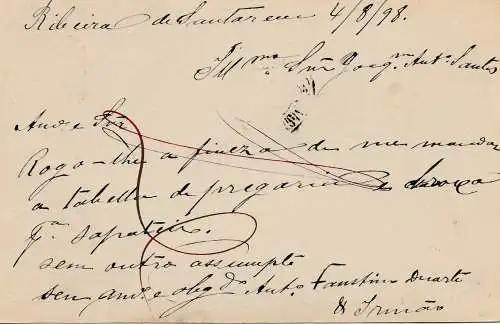 Ribeira de Santarem 4/8/98.
Ill.mo Snr Joaq.m Ant.o Santos
Am.o e Snr
Rogo-lhe a fineza de me mandar
a tabella de pregaria e
p.a sapateiro.
sem outro assumpto
seu am.o e obrg.do Ant.o Faustino Duarte
& Irmão